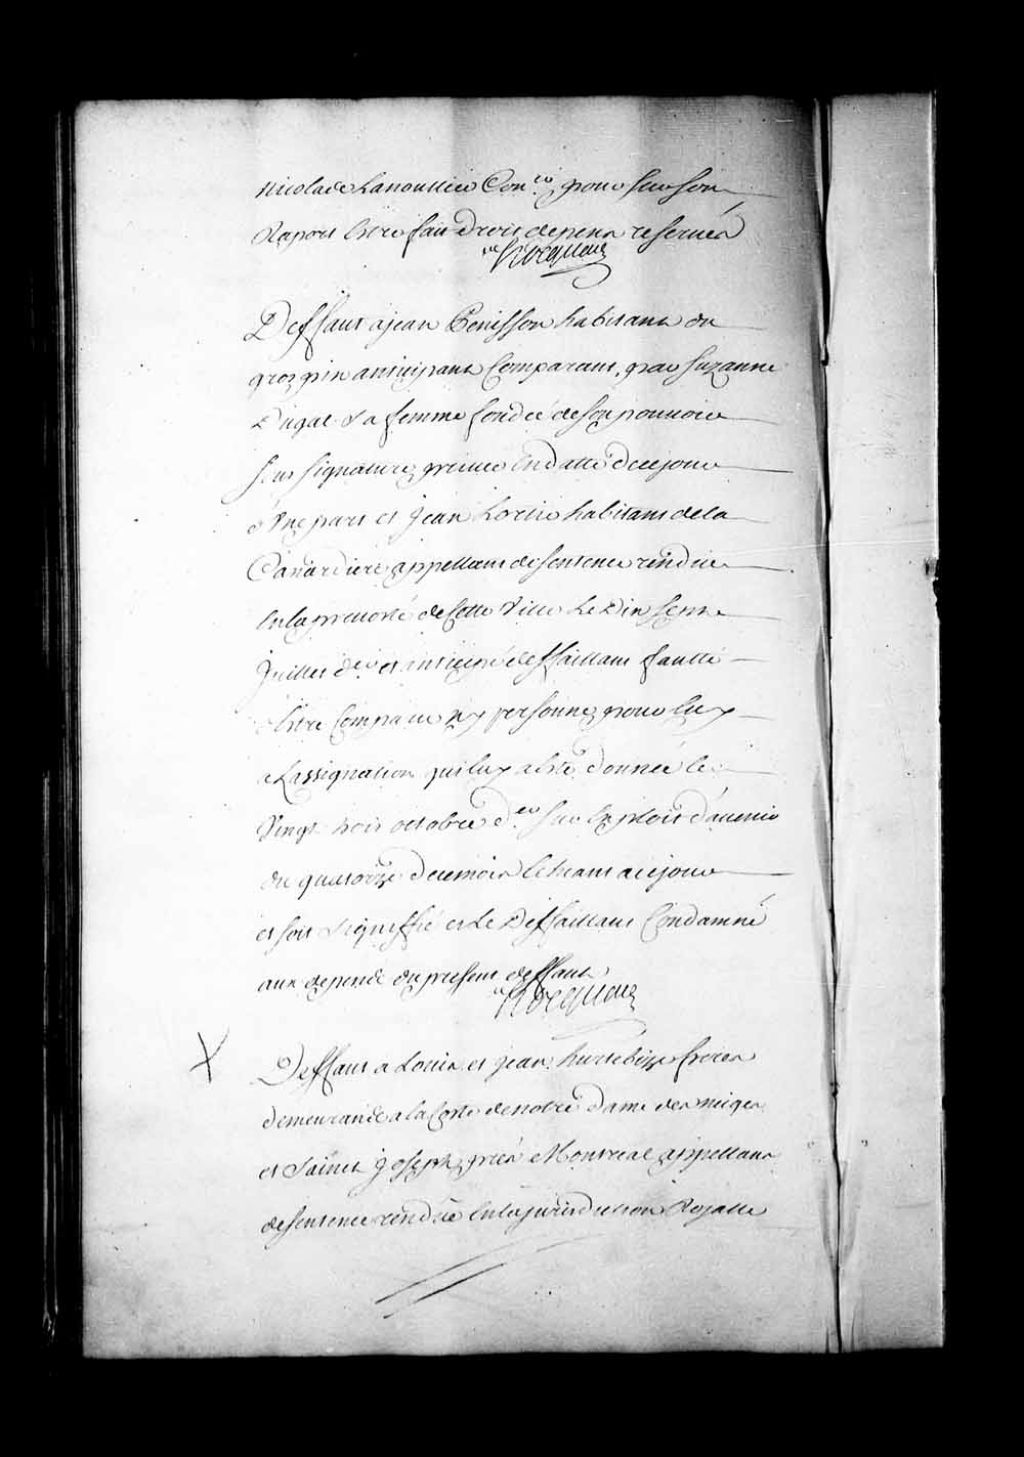 Nicolas de Lanoullier Con.er pour sur son
Raport Estre fait droit depens reservés
Hocquart
Deffaut a jean Penisson habitant du
gros pin anticipant Comparant par Suzanne
Dugal sa femme fondée de son pouvoir
sous signature privée En datte de ce jour
d'Une part et jean Lorin habitant de la
Canardiere appellant de sentence rendue
En la prevosté de Cette Ville Le Dix Sept
juillet d.er et anticipé deffaillant fautte
d'Estre Comparu ny personne pour luy
a Lassignation qui luy a Esté donnée le
Vingt trois octobre d.er sur Exploit d'avenir
du quatorze de ce mois Echeant a ce jour
et soit signiffié et Le Deffaillant Condamné
aux depens du present deffaut
Hocquart
Deffaut a Louis et jean hurtebize freres
demeurants a la Coste de notre dame des neiges
et Saint joseph près Montreal appellants
de sentence rendüe En la jurisdiction Royalle